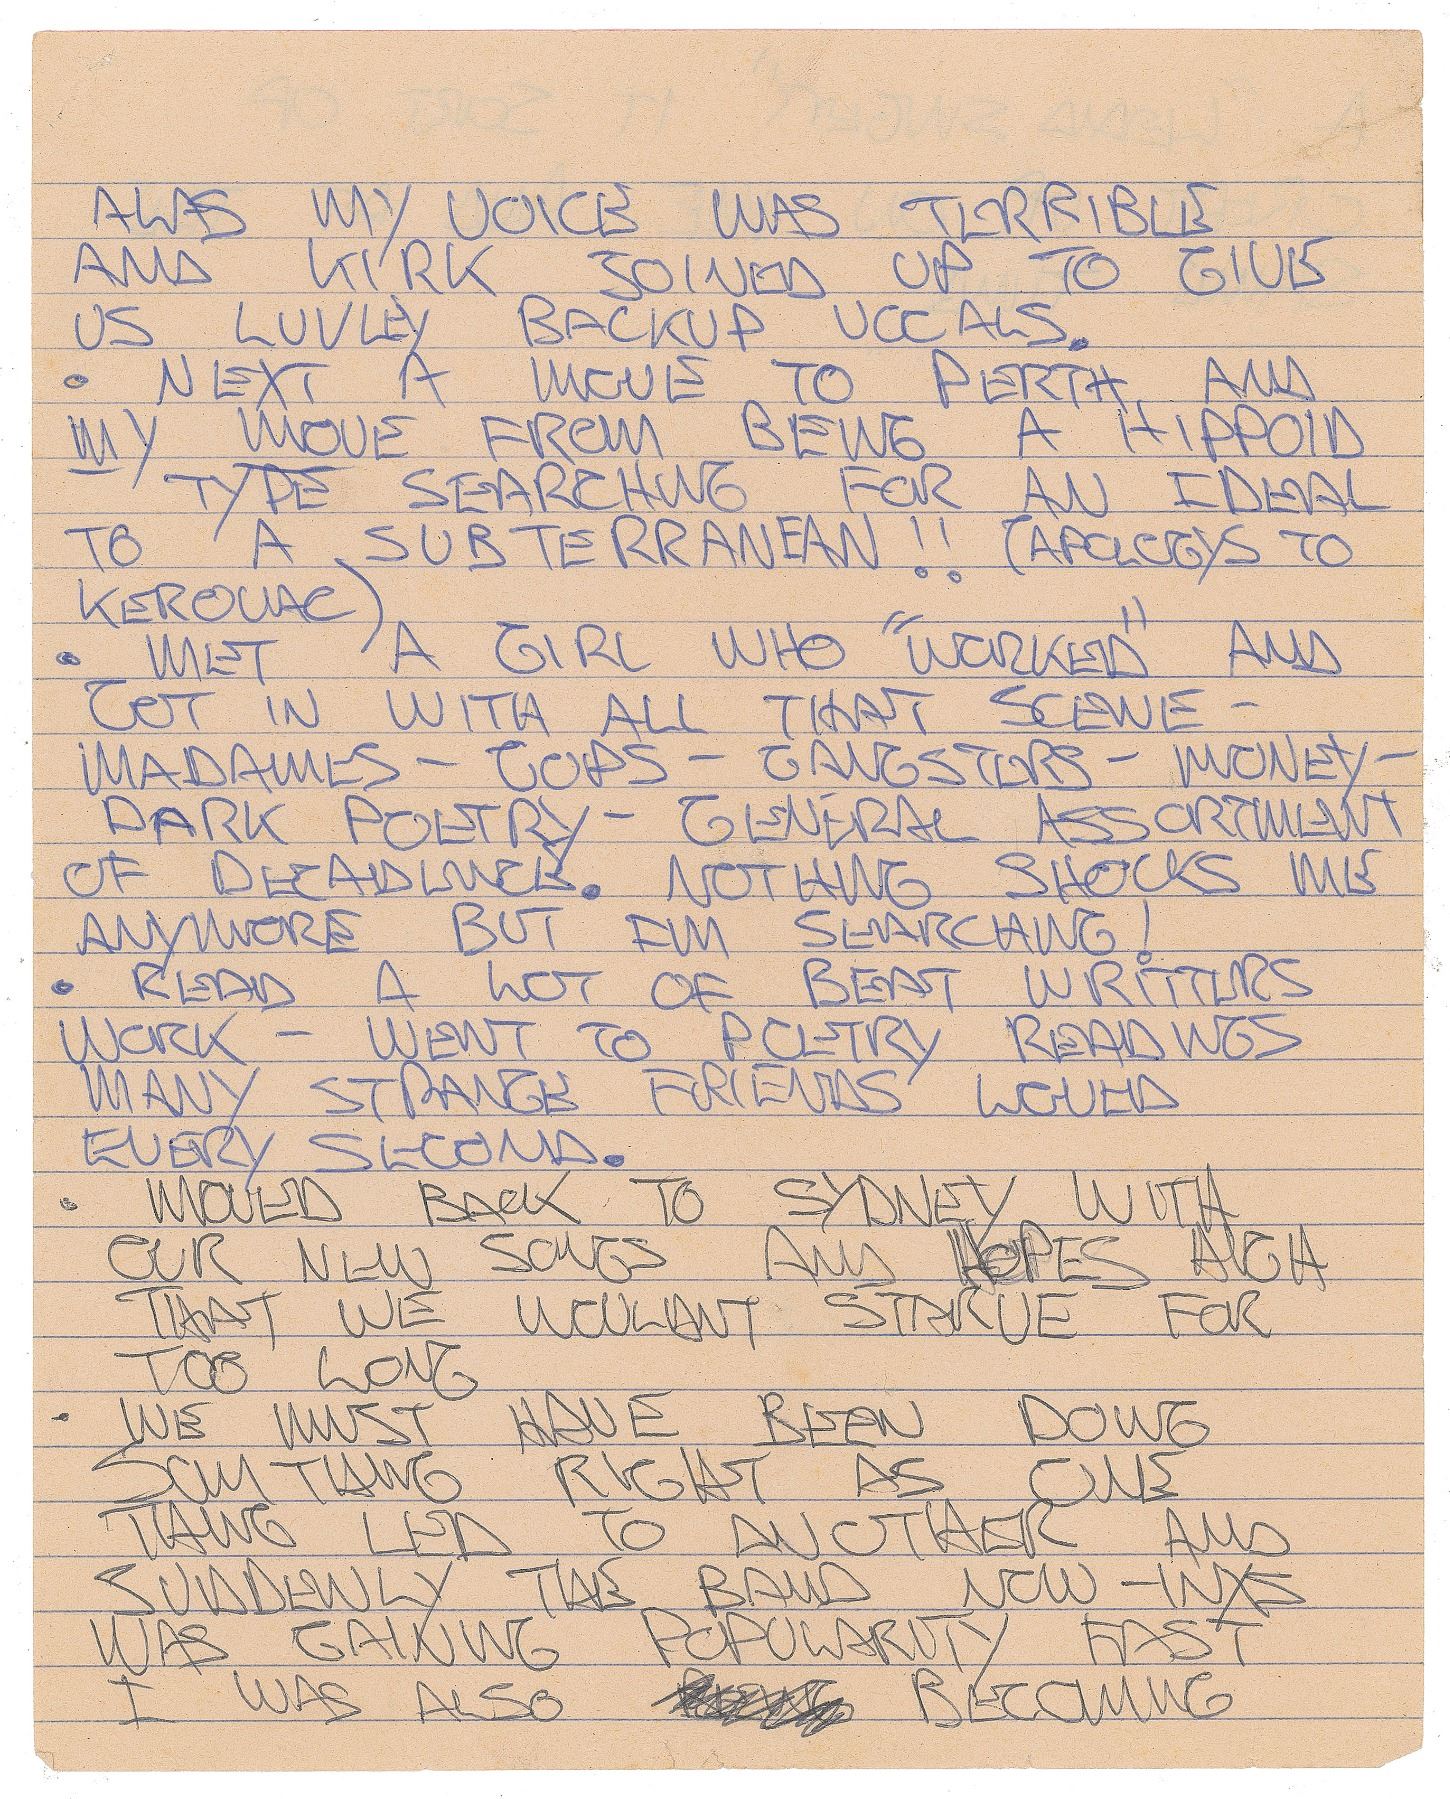 ALAS MY VOICE WAS TERRIBLE
AND KIRK JOINED UP TO GIVE
US LUVLEY BACKUP VOCALS.
• NEXT A MOVE TO PERTH AND
MY MOVE FROM BEING A HIPPOID
TYPE SEARCHING FOR AN IDEAL
TO A SUBTERRANEAN!! (APOLOGYS TO
KEROUAC)
• MET A GIRL WHO "WORKED" AND
GOT IN WITH ALL THAT SCENE -
MADAMES - COPS - GANGSTERS - MONEY -
DARK POETRY - GENERAL ASSORTMENT
OF DECADENCE. NOTHING SHOCKS ME
ANYMORE BUT IM SEARCHING!
• READ A LOT OF BEAT WRITTERS
WORK - WENT TO POETRY READINGS
MANY STRANGE FRIENDS LOVED
EVERY SECOND.
• MOVED BACK TO SYDNEY WITH
OUR NEW SONGS AND HOPES HIGH
THAT WE WOULDNT STARVE FOR
TOO LONG
• WE MUST HAVE BEEN DOING
SOMTHING RIGHT AS ONE
THING LED TO ANOTHER AND
SUDDENLY THE BAND NOW - INXS
WAS GAINING POPULARITY FAST
I WAS ALSO BECOMING